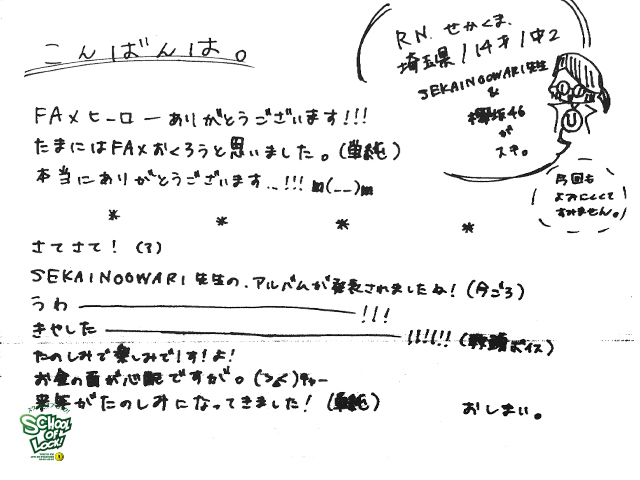 こんばんは。
R.N. せかくま.
埼玉県 / 14才 / 中2
SEKAINOOWARI先生
&
欅坂46
が
スキ。
今回も
よみにくくて
すみません。
FAXヒーローありがとうございます!!!
たまにはFAXおくろうと思いました。(単純)
本当にありがとうございます…!!! m(__)m
* * * *
さてさて! (3)
SEKAINOOWARI先生の、アルバムが発表されましたね!(今ごろ)
うわ ――――――― !!!
きやした ――――――― !!!!!! (ボイス)
たのしみで楽しみでIす!よ!
お金の面が心配ですが。
来年がたのしみになってきました! (単純)
おしまい。
SCHOOL
OF
LOCK!